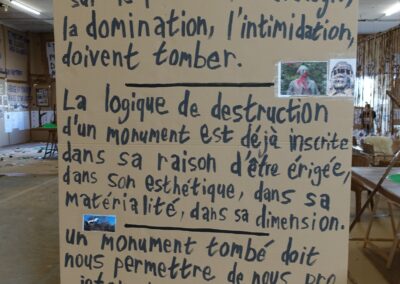 la domination, l'intimidation,
doivent tomber.
La logique de destruction
d'un monument est déjà inscrite
dans sa raison d'être érigée,
dans son esthétique, dans sa
matérialité, dans sa dimension.
un monument tombé doit
nous permettre de nous pro